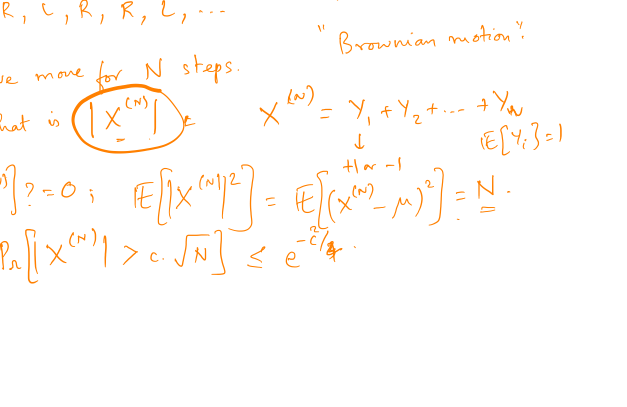 R, L, R, R, L, ...
"Brownian motion".
we move for N steps.
what is |X^(N)|
X^(N) = Y_1 + Y_2 + ... + Y_N
↓
+1 or -1
E[Y_i] = 1
] ? = 0 ; E[|X^(N)|^2] = E[(X^(N) - μ)^2] = N.
Pr[|X^(N)| > c. √N] ≤ e^{-c^2/4}.